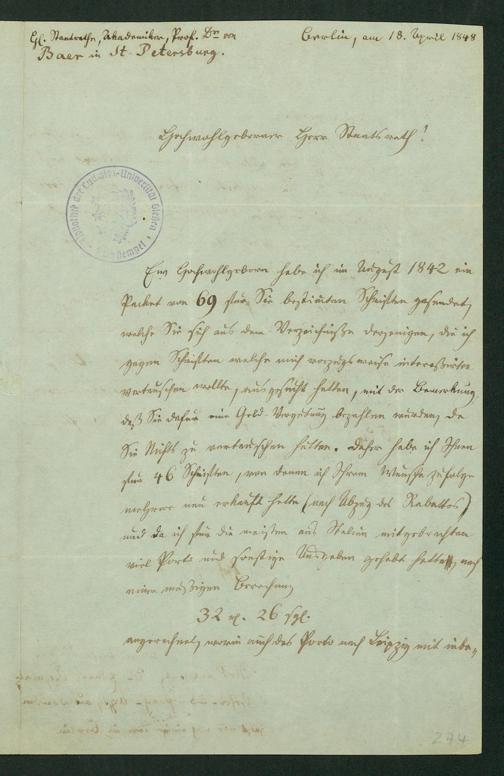 Hl. Staatrathe, Akademiker, Prof. Dr. von
Baer in St. Petersburg.
Berlin, am 18. April 1848
Hochwohlgeborner Herr Staatsrath!
Bibliothek der Ludwigs-Universität Giessen
Ew. Hochwohlgeborn habe ich im August 1842 ein
Packet von 69 für Sie bestimten Schriften gesendet,
welche Sie sich aus dem Verzeichnisse derjenigen, die ich
gegen Schriften welche mich vorzugsweise interessirten
vertauschen wollte, ausgesucht hatten, mit der Bemerkung,
daß Sie dafür eine Geld-Vergütung bezahlen würden, da
Sie Nichts zu vertauschen hätten. Daher habe ich Ihnen
für 46 Schriften, von denen ich Ihrem Wunsche zufolge
mehrere neu erkauft hatte (nach Abzug des Rabattes)
und da ich für die meisten aus Italien mitgebrachten
viel Porto und sonstige Ausgaben gehabt hatte, nach
einer mässigen Berechnung
32 26 sgl.
angerechnet, worin auch das Porto nach Leipzig mit inbe-
244